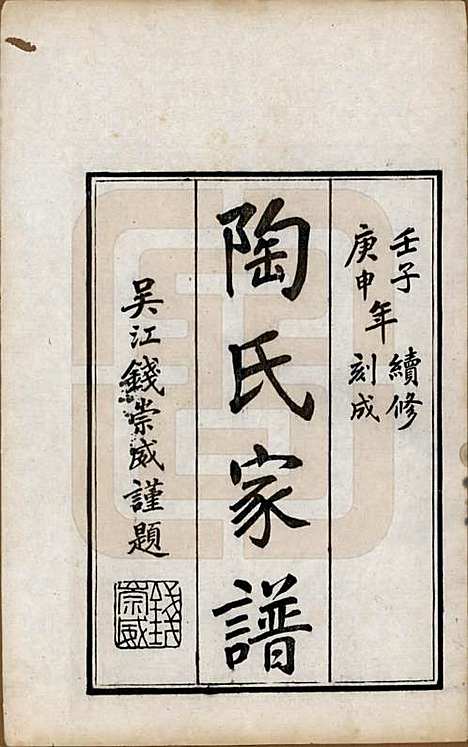 壬子
庚申
年
續修
刻成
陶氏家譜
吴江錢崇威謹題
錢
崇威